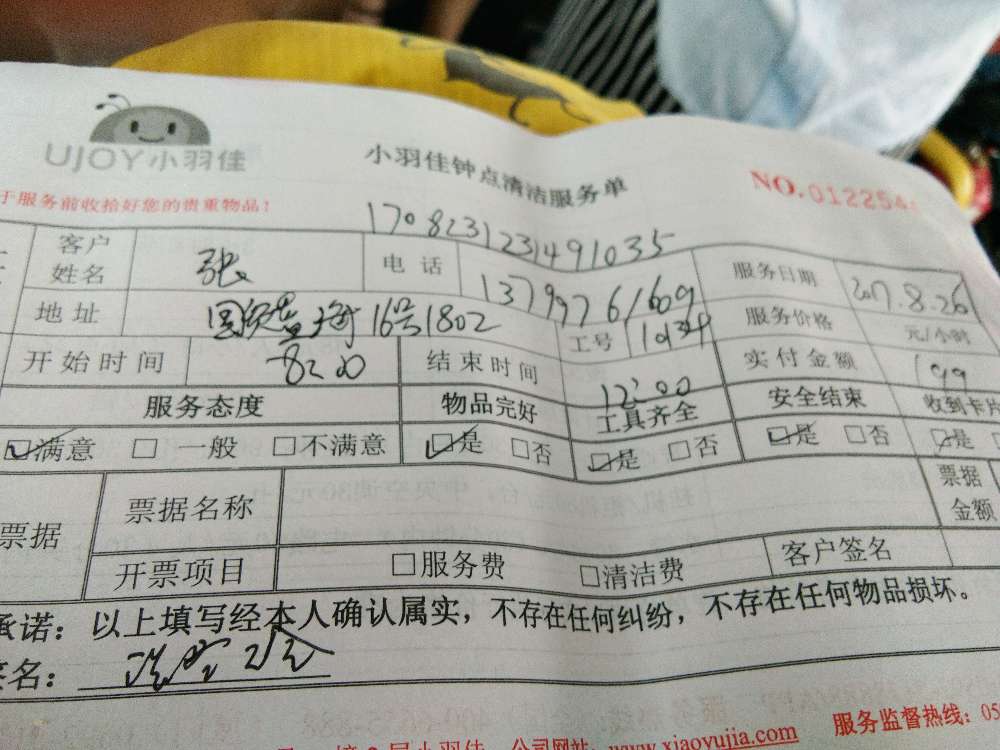 UJOY小羽佳
小羽佳钟点清洁服务单
NO.012254
于服务前收拾好您的贵重物品!
1708231231491035
客户姓名 张 电话 13799761609 服务日期 2017.8.26
地址 16号1802 工号 1034 服务价格 元/小时
开始时间 8:00 结束时间 12:00 实付金额 199
服务态度 物品完好 工具齐全 安全结束 收到卡片
☑满意 □一般 □不满意 ☑是 □否 ☑是 □否 ☑是 □否 ☑是
票据 票据名称 票据金额
开票项目 □服务费 □清洁费 客户签名
承诺:以上填写经本人确认属实,不存在任何纠纷,不存在任何物品损坏。
签名:
小羽佳 公司网站:www.xiaoyujia.com 服务监督热线:05